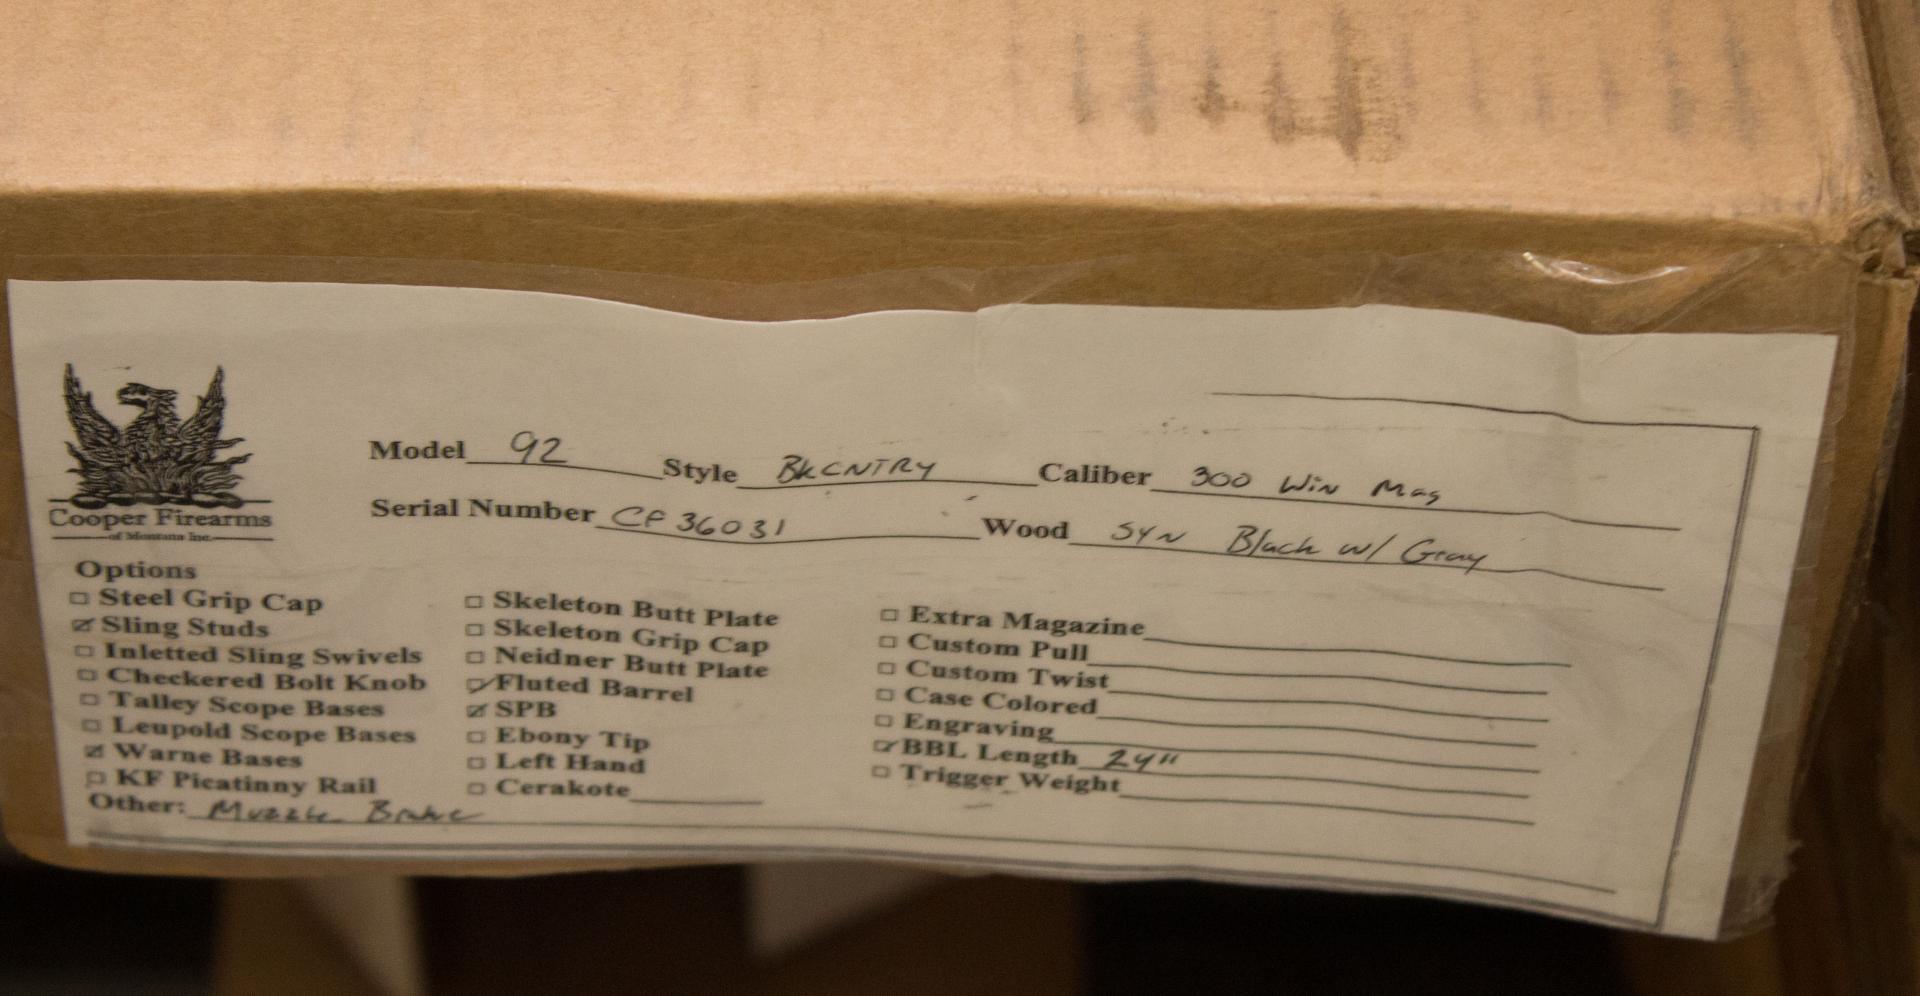 Cooper Firearms
of Montana Inc.
Model 92 Style BKCNTRY Caliber 300 Win Mag
Serial Number CF36031 Wood SYN Black w/ Gray
Options
☐ Steel Grip Cap
☑ Sling Studs
☐ Inletted Sling Swivels
☐ Checkered Bolt Knob
☐ Talley Scope Bases
☐ Leupold Scope Bases
☑ Warne Bases
☐ KF Picatinny Rail
☐ Skeleton Butt Plate
☐ Skeleton Grip Cap
☐ Neidner Butt Plate
☑ Fluted Barrel
☑ SPB
☐ Ebony Tip
☐ Left Hand
☐ Cerakote
☐ Extra Magazine
☐ Custom Pull
☐ Custom Twist
☐ Case Colored
☐ Engraving
☑ BBL Length 24"
☐ Trigger Weight
Other: Muzzle Brake